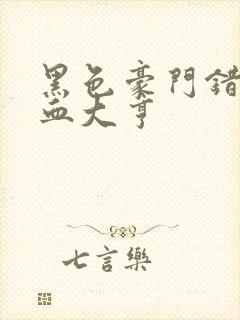 黑色豪門錯
血大亨
七言樂